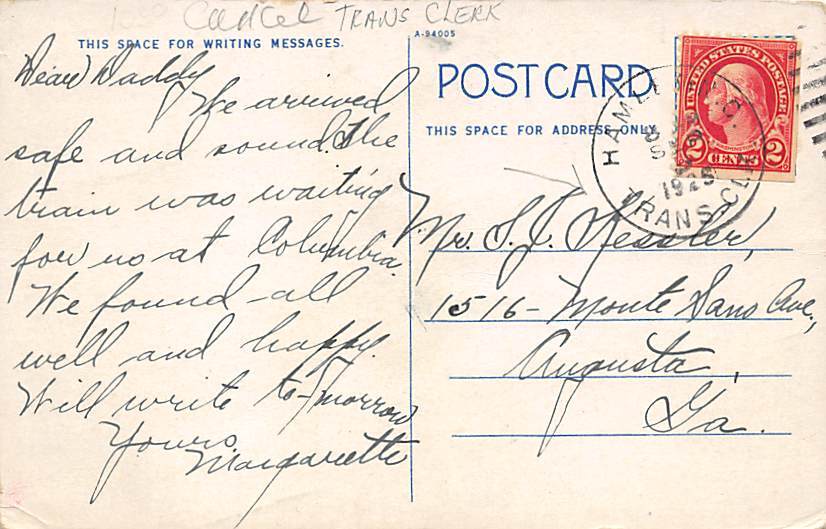 Cancel TRANS CLERK
THIS SPACE FOR WRITING MESSAGES.
Dear Daddy
We arrived
safe and sound. The
train was waiting
for us at Columbia.
We found all
well and happy.
Will write to-morrow
Yours,
Margarette
A-94005
POST CARD
THIS SPACE FOR ADDRESS ONLY
UNITED STATES POSTAGE
WASHINGTON
2 CENTS 2
HAMLET N.C.
1926
TRANS. CLK
Mr. S. J. Kessler,
1516 - Monte Sano Ave.,
Augusta,
Ga.